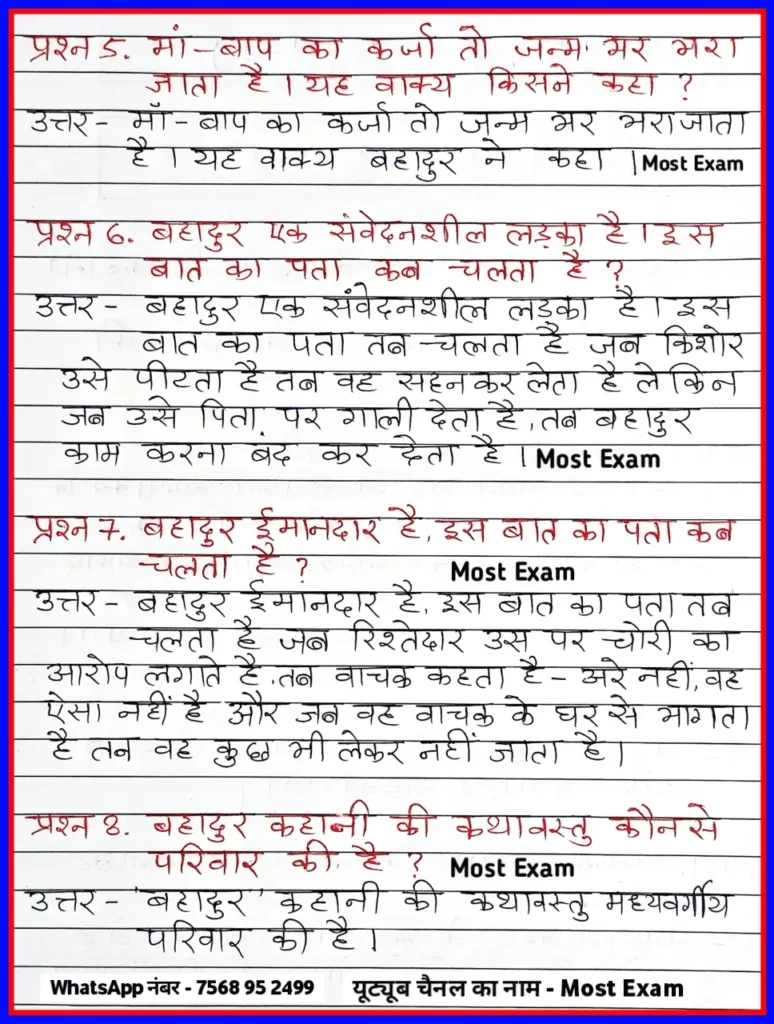 प्रश्न 5. मां-बाप का कर्जा तो जन्म भर भरा
जाता है। यह वाक्य किसने कहा ?
उत्तर- माँ-बाप का कर्जा तो जन्म भर भरा जाता
है। यह वाक्य बहादुर ने कहा । Most Exam
प्रश्न 6. बहादुर एक संवेदनशील लड़का है। इस
बात का पता कब चलता है ?
उत्तर- बहादुर एक संवेदनशील लड़का है। इस
बात का पता तब चलता है जब किशोर
उसे पीटता है तब वह सहन कर लेता है लेकिन
जब उसे पिता पर गाली देता है, तब बहादुर
काम करना बंद कर देता है। Most Exam
प्रश्न 7. बहादुर ईमानदार है, इस बात का पता कब
चलता है ? Most Exam
उत्तर- बहादुर ईमानदार है, इस बात का पता तब
चलता है जब रिश्तेदार उस पर चोरी का
आरोप लगाते है, तब वाचक कहता है - अरे नहीं, वह
ऐसा नहीं है और जब वह वाचक के घर से भागता
है तब वह कुछ भी लेकर नहीं जाता है।
प्रश्न 8. बहादुर कहानी की कथावस्तु कौनसे
परिवार की है ? Most Exam
उत्तर- "बहादुर" कहानी की कथावस्तु मध्यवर्गीय
परिवार की है।
WhatsApp नंबर - 7568 95 2499 यूट्यूब चैनल का नाम - Most Exam